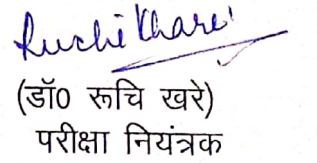 Ruchi Khare
(डॉ0 रूचि खरे)
परीक्षा नियंत्रक